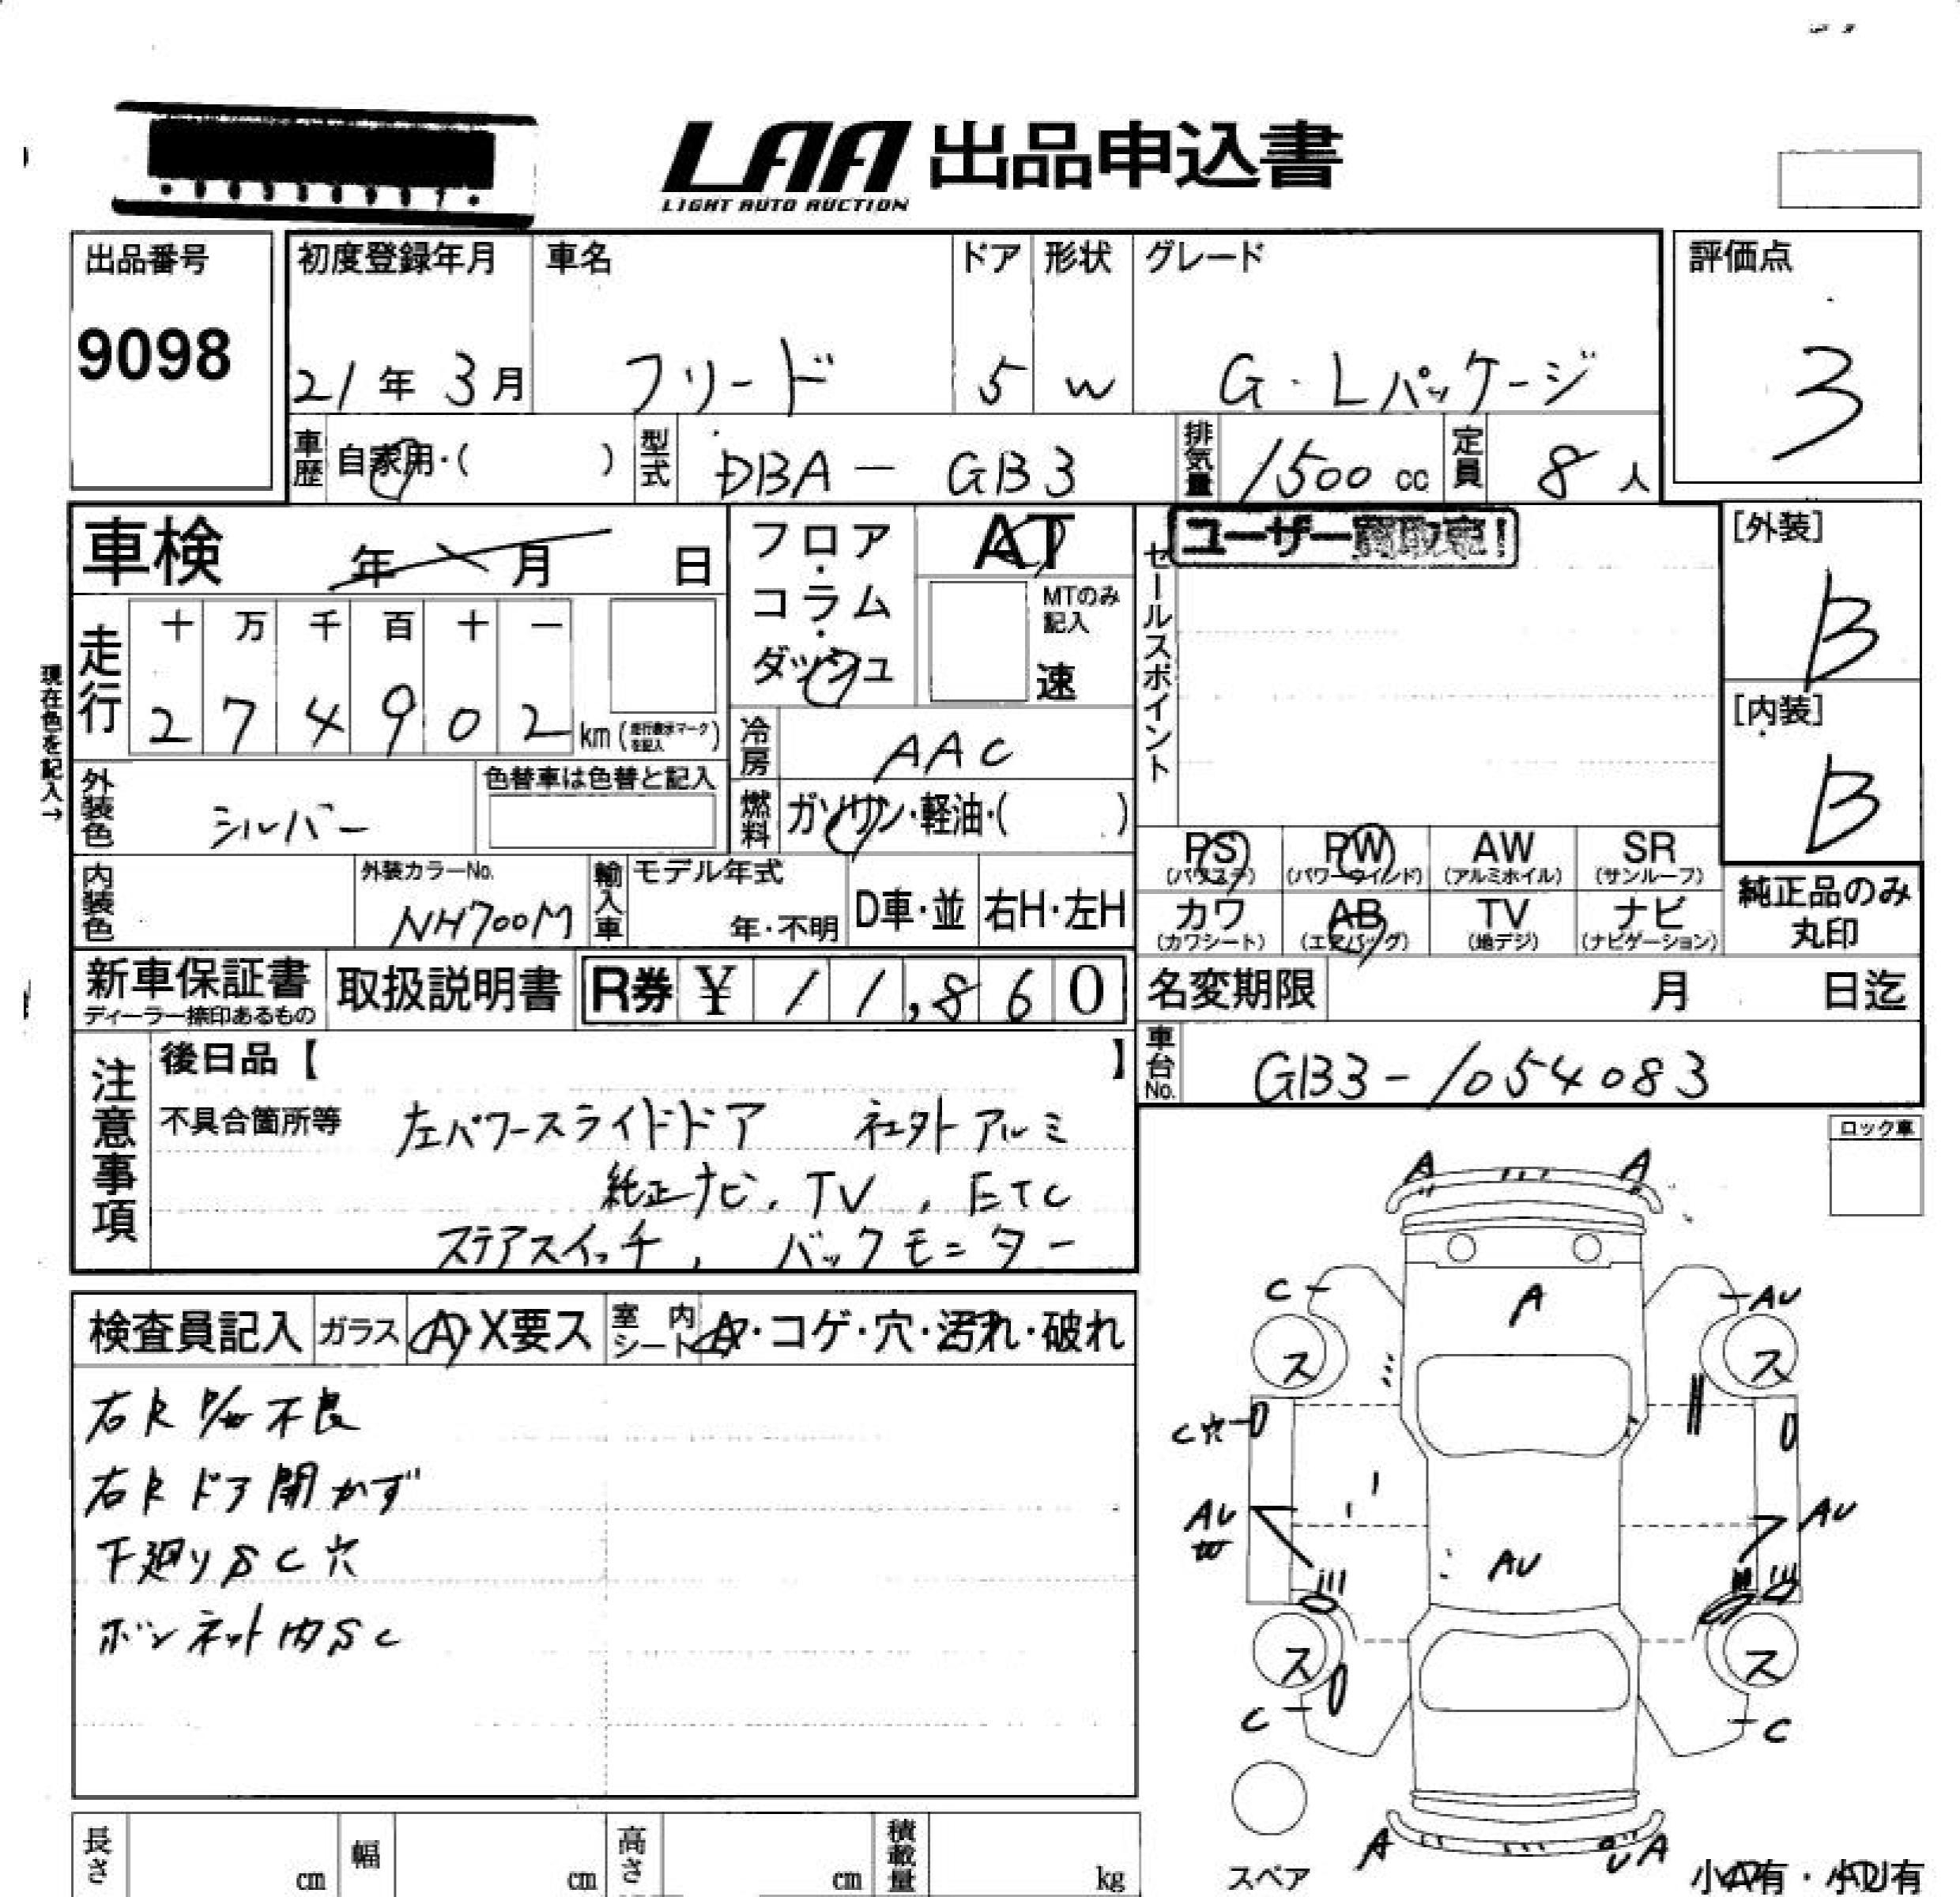 LAA 出品申込書
LIGHT AUTO AUCTION
出品番号
9098
初度登録年月
21年 3月
車名
フリード
ドア
5
形状
W
グレード
G・Lパッケージ
評価点
3
車歴 自家用・( )
型式 DBA - GB3
排気量 1500 cc
定員 8 人
車検 年 月 日
フロア・コラム・ダッシュ
AT
MTのみ記入
速
セールスポイント
ユーザー
[外装]
B
[内装]
B
現在色を記入→
走行
十 万 千 百 十 一
2 7 4 9 0 2 km
冷房 AAC
燃料 ガソリン・軽油・( )
外装色 シルバー
色替車は色替と記入
内装色
外装カラーNo.
NH700M
輸入車 モデル年式
年・不明
D車・並
右H・左H
PS (パワステ)
PW (パワーウインド)
AW (アルミホイル)
SR (サンルーフ)
カワ (カワシート)
AB (エアバッグ)
TV (地デジ)
ナビ (ナビゲーション)
純正品のみ丸印
新車保証書
ディーラー捺印あるもの
取扱説明書
R券 ¥ 11,860
名変期限 月 日迄
車台No. GB3-1054083
注意事項
後日品【 】
不具合箇所等 左パワースライドドア 社外アルミ
純正ナビ、TV、ETC
ステアスイッチ、バックモニター
ロック車
検査員記入
ガラス A・X要ス
室内シート A・コゲ・穴・汚れ・破れ
右R P/W不良
右Rドア開かず
下廻りSC穴
ボンネット内SC
A A
C A AU
ス ス
C穴
AU AU
AU
ス ス
C C
A UA
スペア
長さ cm
幅 cm
高さ cm
積載量 kg